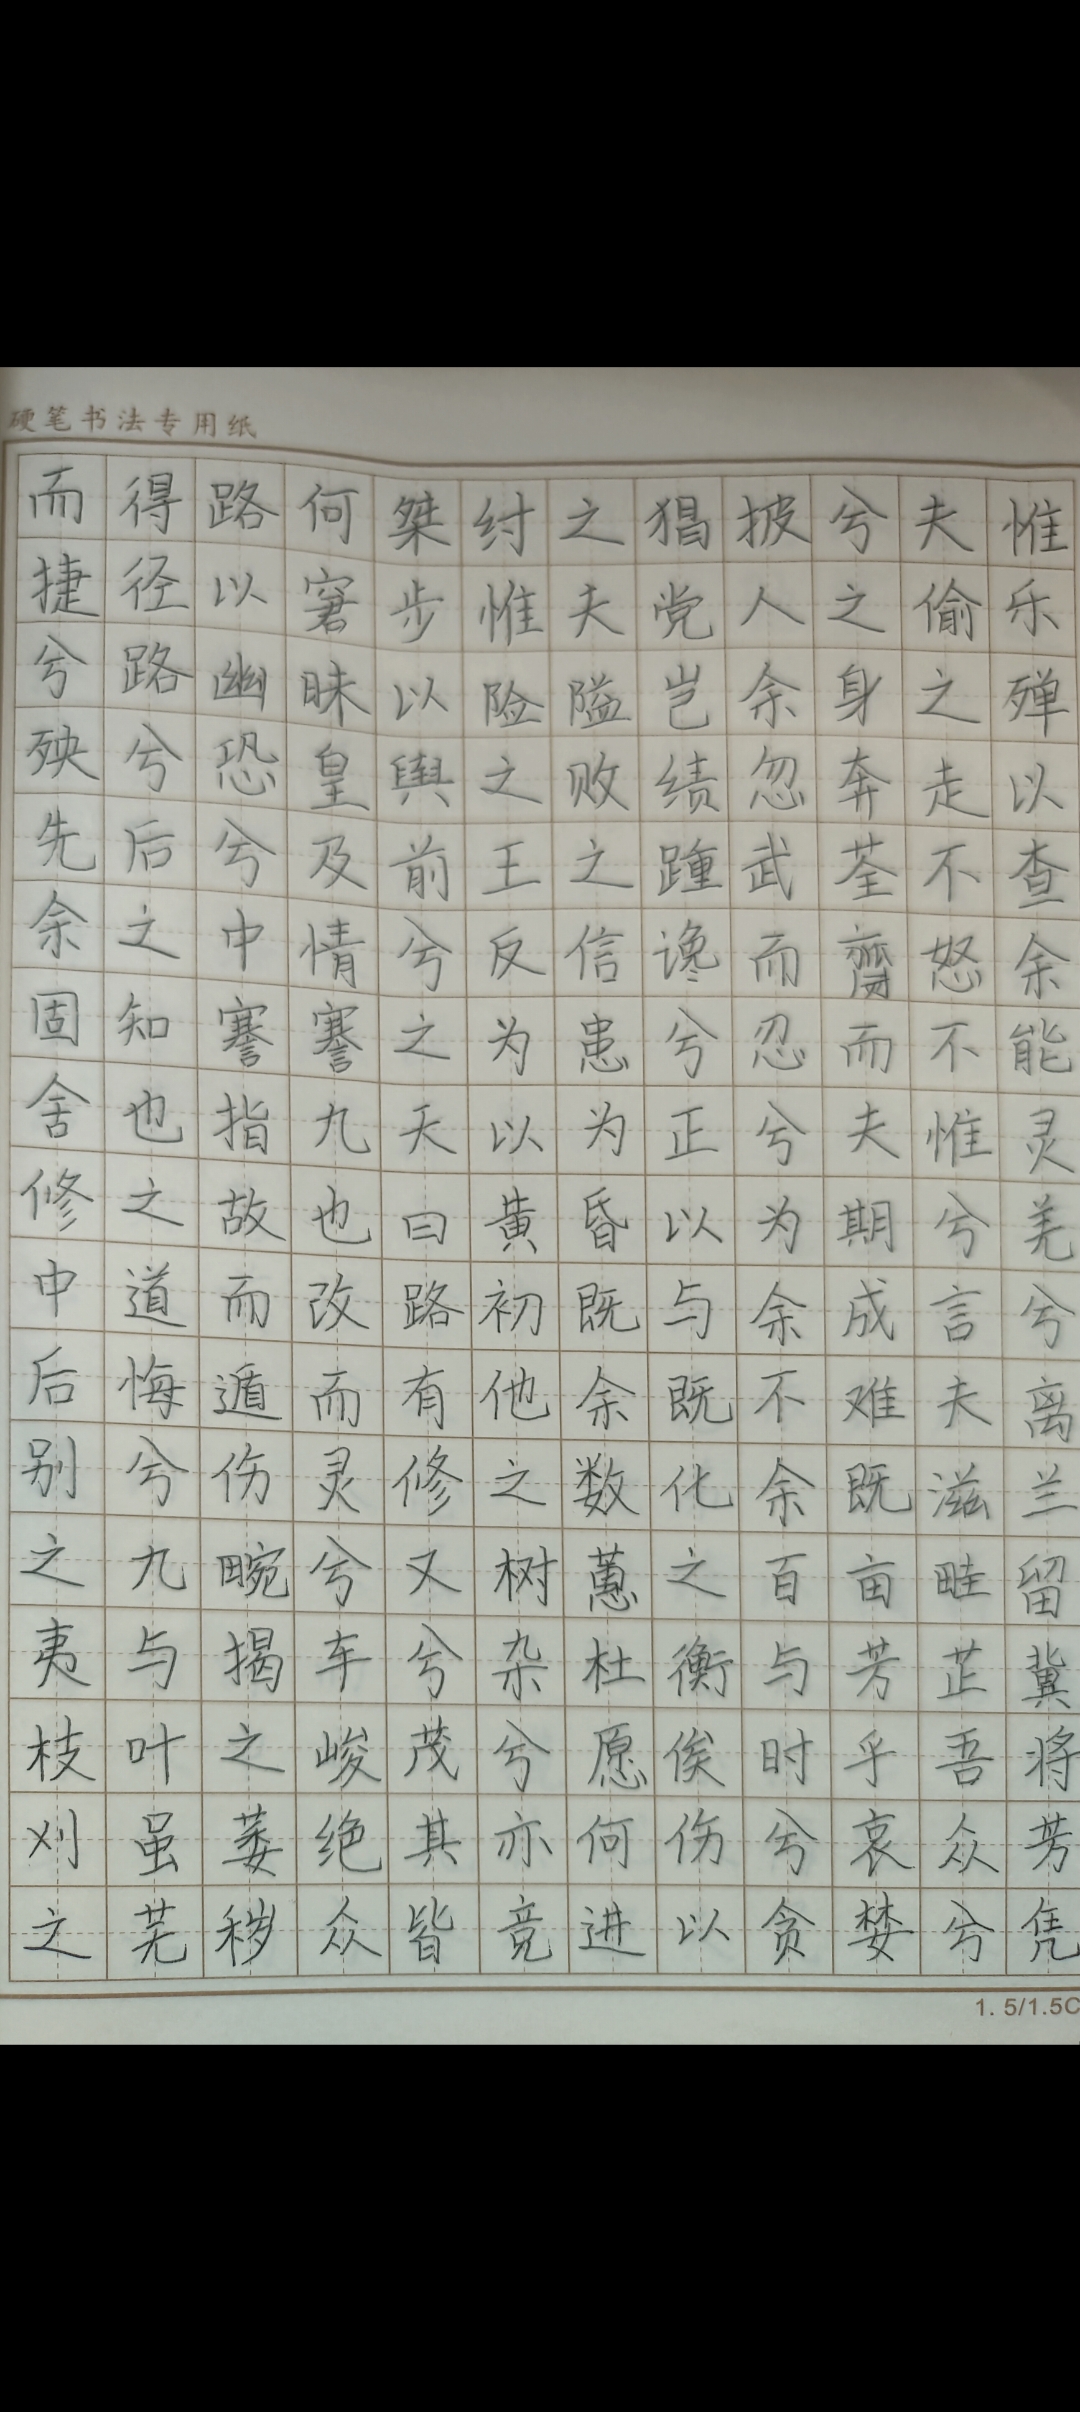 硬笔书法专用纸
而得路何桀纣之猖披兮夫惟
捷径以窘步惟夫党人之偷乐
兮路幽昧以险隘岂余身之殚
殃兮恐皇舆之败绩忽奔走以
先后兮及前王之踵武荃不查
余之中情兮反信谗而齌怒余
固知謇謇之为患兮忍而不能
舍也指九天以为正兮夫惟灵
修之故也曰黄昏以为期兮羌
中道而改路初既与余成言兮
后悔遁而有他余既不难夫离
别兮伤灵修之数化余既滋兰
之九畹兮又树蕙之百亩畦留
夷与揭车兮杂杜衡与芳芷冀
枝叶之峻茂兮愿俟时乎吾将
刈虽萎绝其亦何伤兮哀众芳
之芜秽众皆竞进以贪婪兮凭
1.5/1.5C